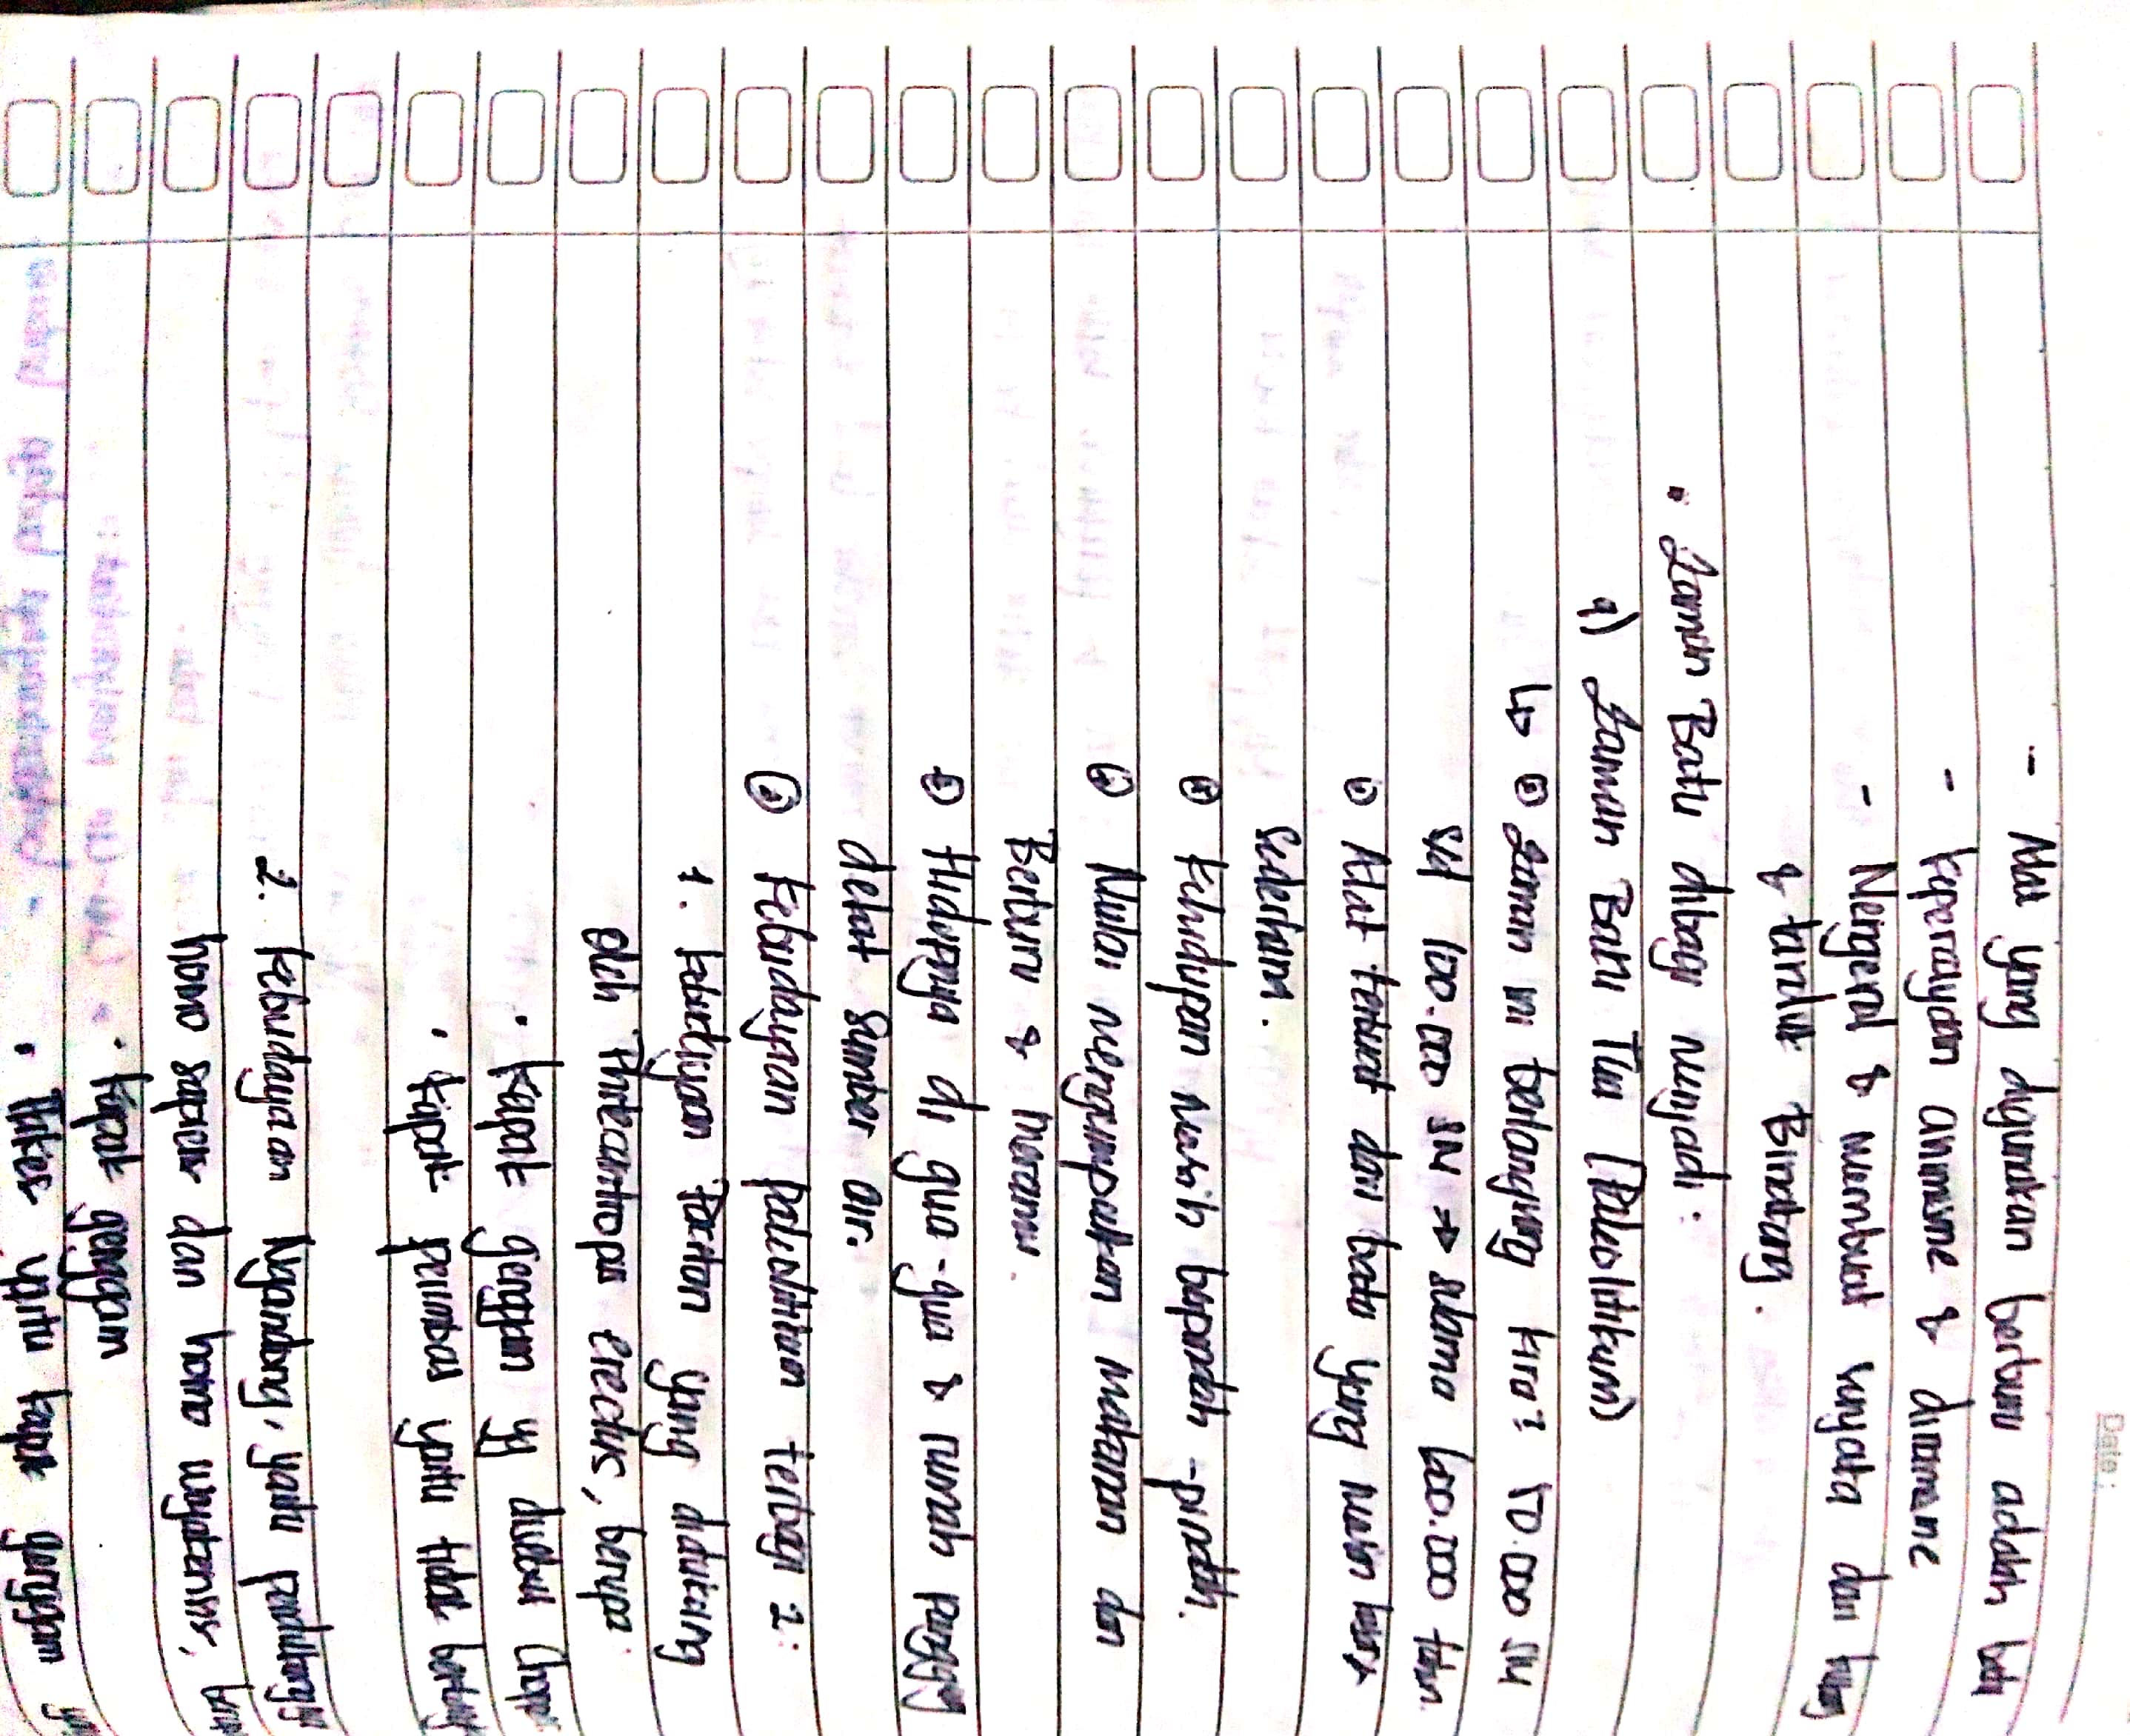 Date:
- Alat yang digunakan berburu adalah
- kepercayaan animisme & dinamisme
- Mengenal & membuat senjata dari
& tanduk Binatang.
• Zaman Batu dibagi menjadi:
a) Zaman Batu Tua (Paleolitikum)
↳ Zaman ini berlangsung kira² 50.000 SM
s/d 100.000 SM → selama 600.000 tahun.
Alat terbuat dari batu yang masih kasar
sederhana.
Kehidupan masih berpindah-pindah.
Mulai mengumpulkan makanan dan
Berburu & meramu.
Hidupnya di gua-gua & rumah panggung
dekat sumber air.
Kebudayaan paleolitikum terbagi 2:
1. kebudayaan Pacitan yang didukung
oleh Phitecantrops erectus, berupa:
• Kapak genggam yg disebut Chop
• Kapak perimbas yaitu tidak bertang
2. kebudayaan Ngandong, yaitu pendukungny
homo sapiens dan homo wajakensis,
• Kapak genggam
• Flakes yaitu kapak genggam